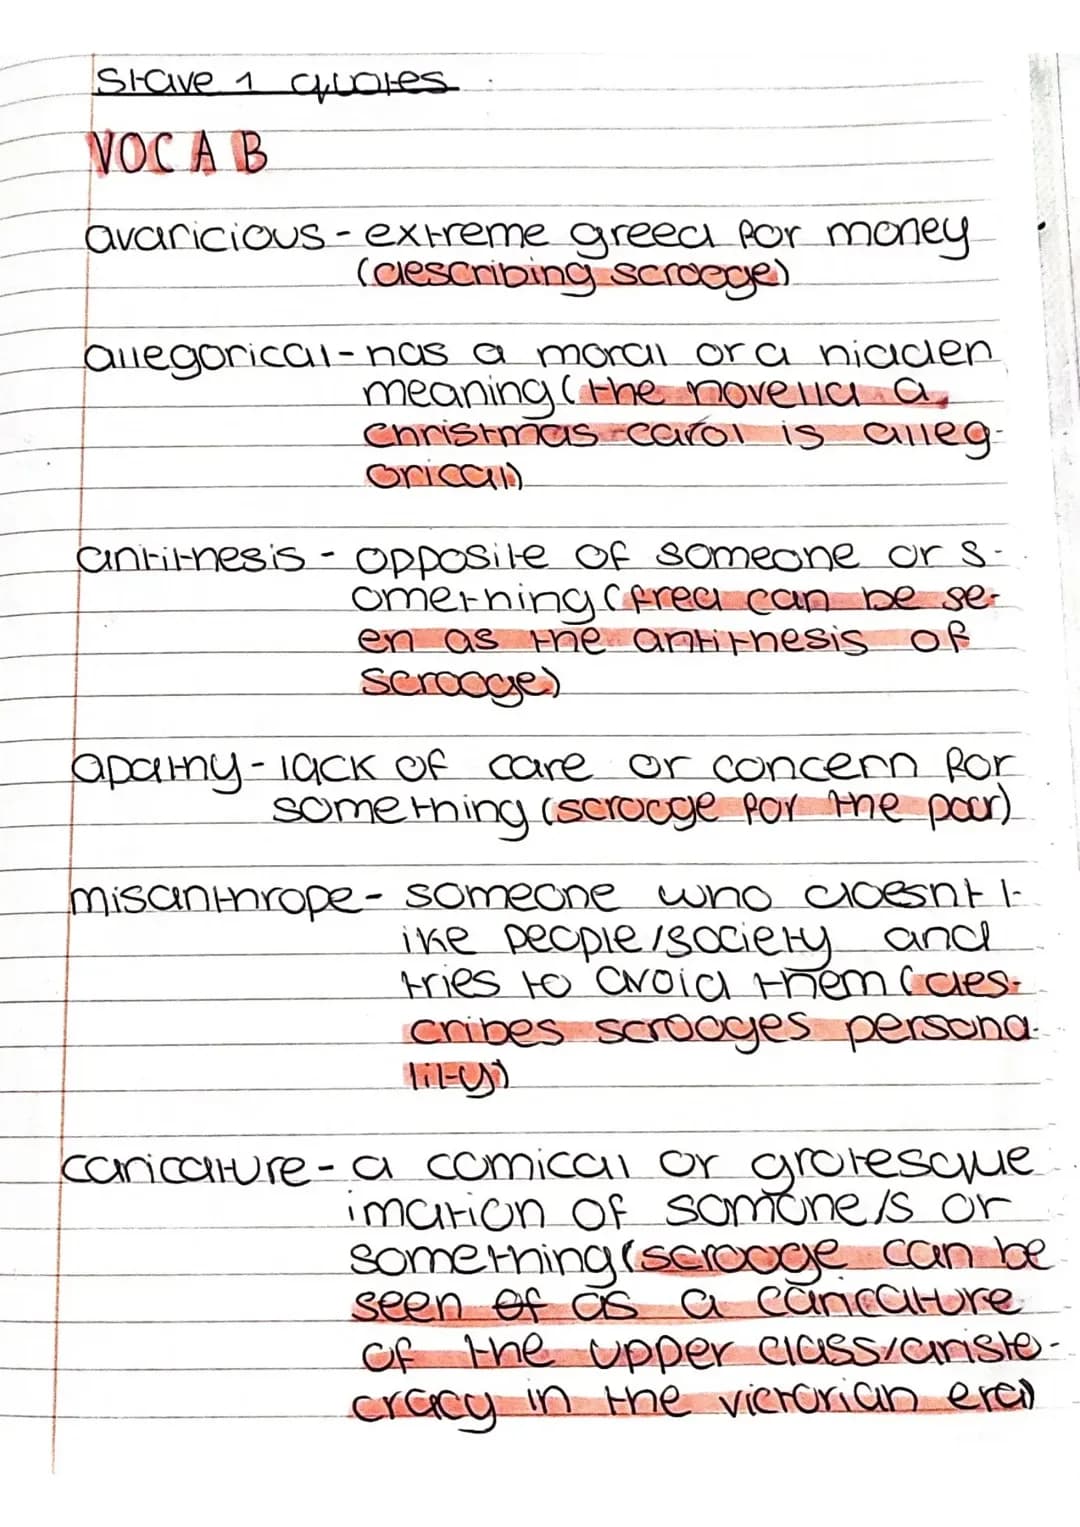 Stave 1 quotes
VOCAB
avaricious - extreme greed for money
(describing scrooge)
allegorical - has a moral or a hidden
meaning (the novella a
christmas carol is alleg-
orical)
antithesis - opposite of someone or s-
omething (fred can be se-
en as the antithesis of
scrooge)
apathy - lack of care or concern for
something (scrooge for the poor)
misanthrope - someone who doesnt l-
ike people/society and
tries to avoid them (des-
cribes scrooges persona-
lity)
caricature - a comical or grotesque
imation of somone/s or
something (scrooge can be
seen of as a caricature
of the upper class/aristo-
cracy in the victorian era)